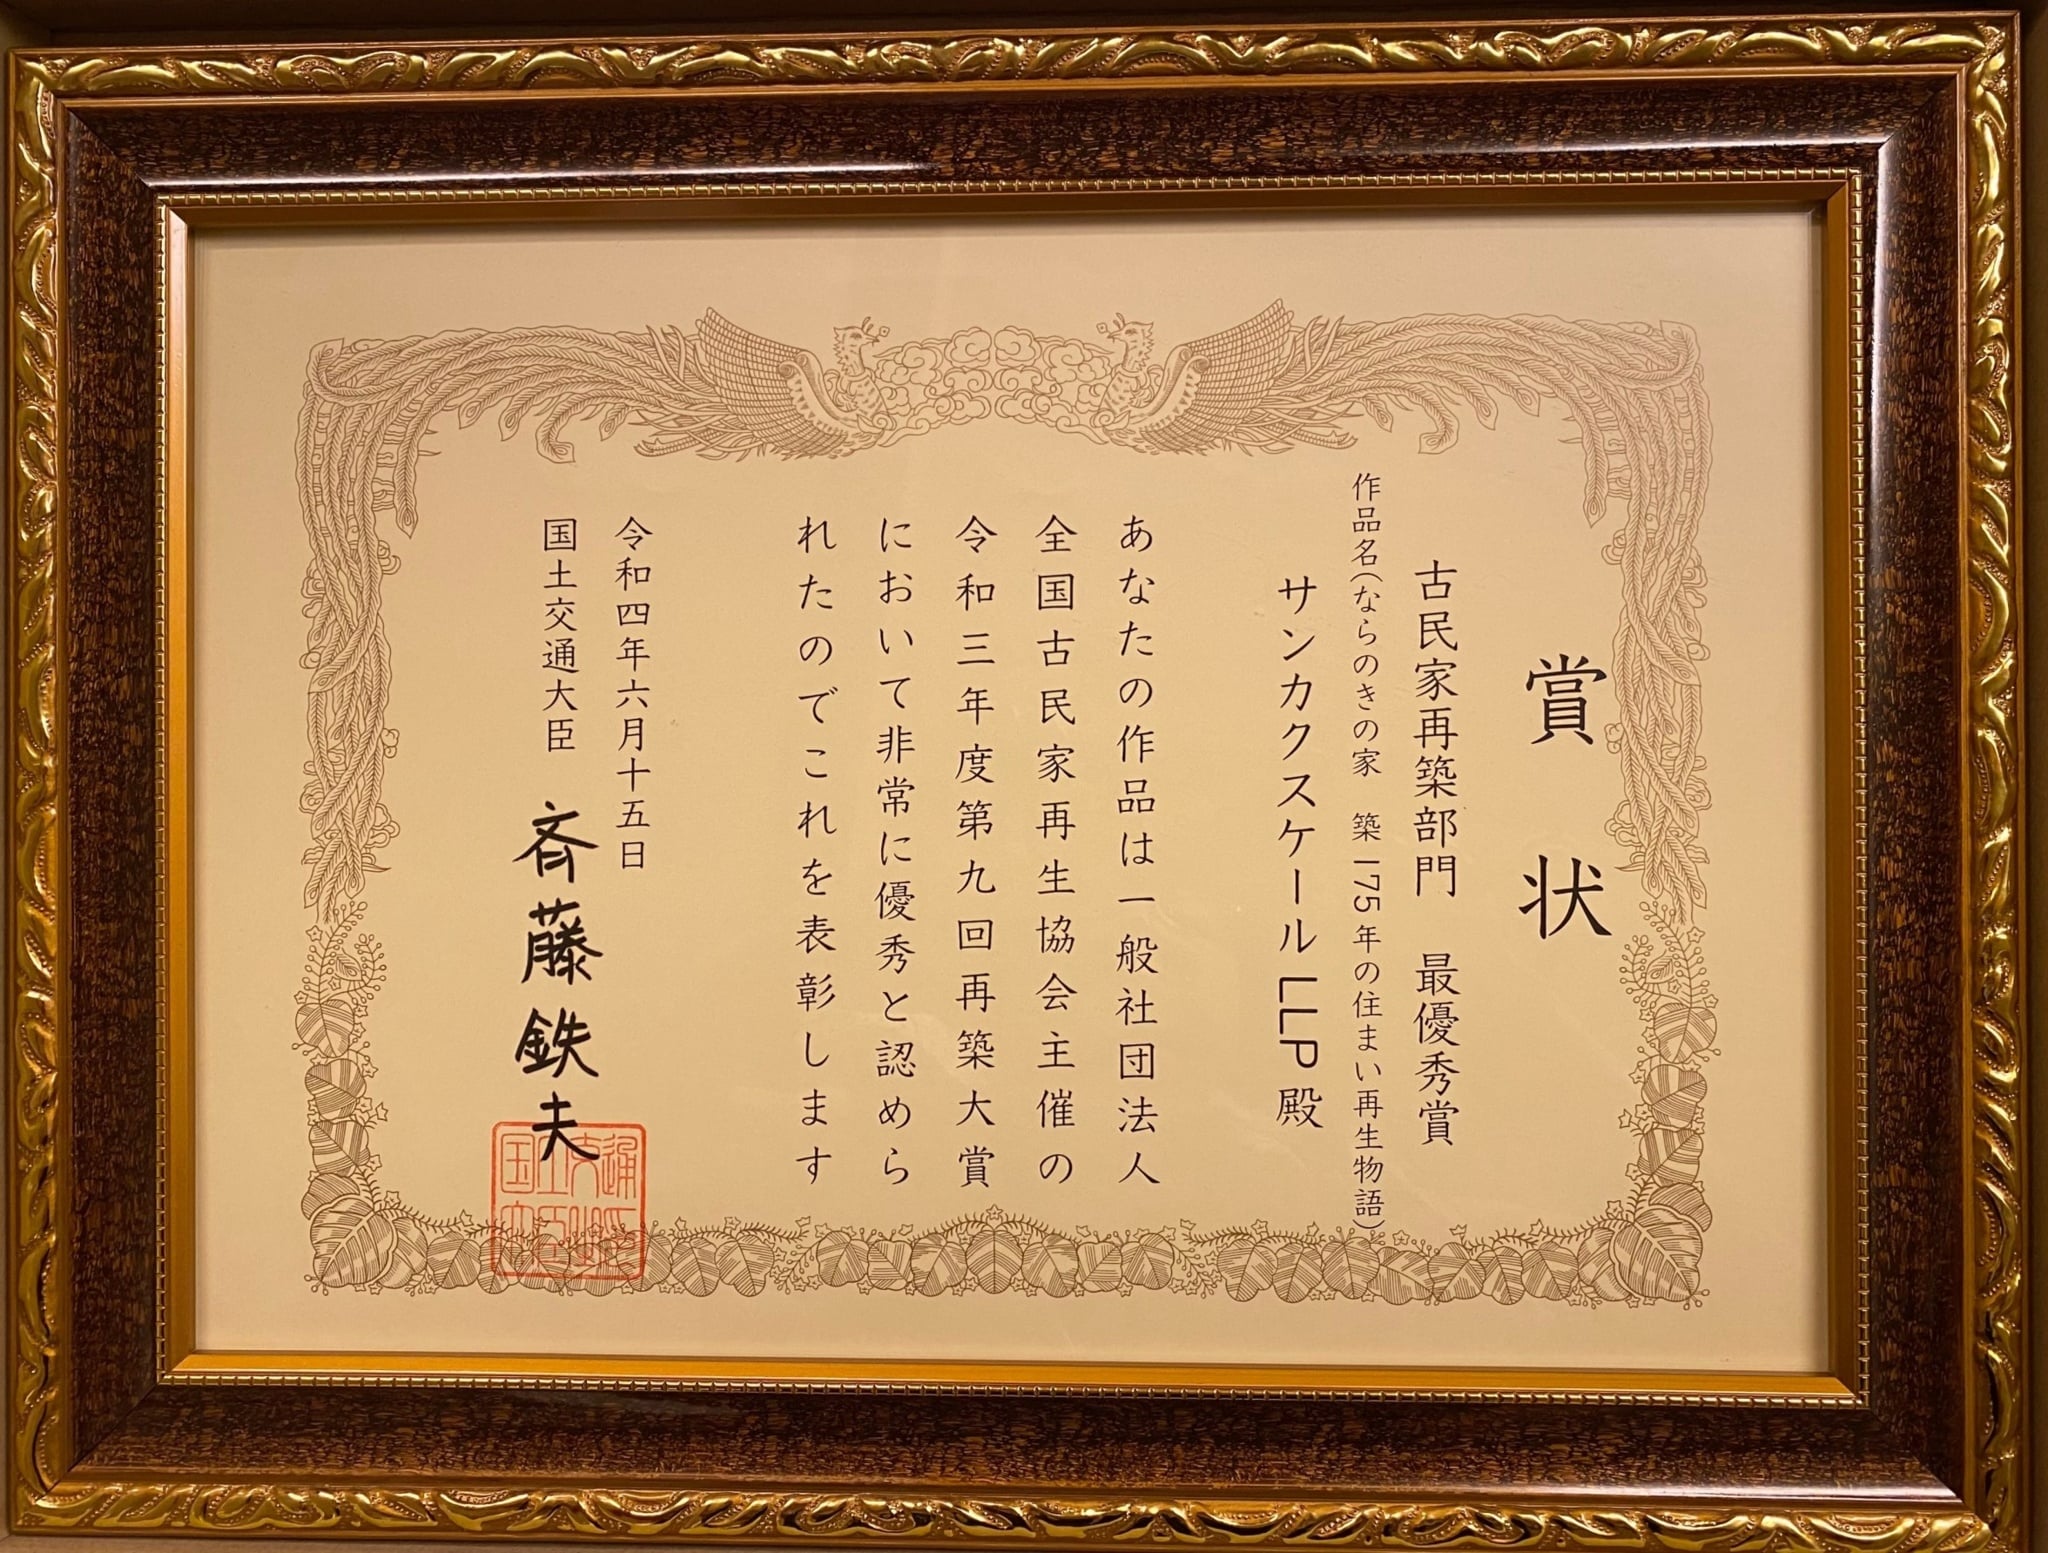 賞状
古民家再築部門　最優秀賞
作品名（ならのきの家　築175年の住まい再生物語）
サンカクスケールLLP殿
あなたの作品は一般社団法人
全国古民家再生協会主催の
令和三年度第九回再築大賞
において非常に優秀と認めら
れたのでこれを表彰します
令和四年六月十五日
国土交通大臣　斉藤鉄夫